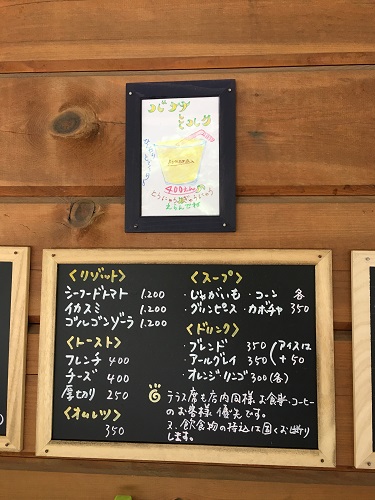 400えん
〈リゾット〉
シーフードトマト 1.200
イカスミ 1.200
ゴルゴンゾーラ 1.200
〈トースト〉
フレンチ 400
チーズ 400
厚切り 250
〈オムレツ〉
350
〈スープ〉
・じゃがいも ・コーン 各
・グリンピース ・カボチャ 350
〈ドリンク〉
・ブレンド 350 (アイスは
・アールグレイ 350 (+50
・オレンジ・リンゴ 300(各)
テラス席も店内同様お食事、コーヒー
のお客様優先です。
又、飲食物の持込は固くお断り
します。